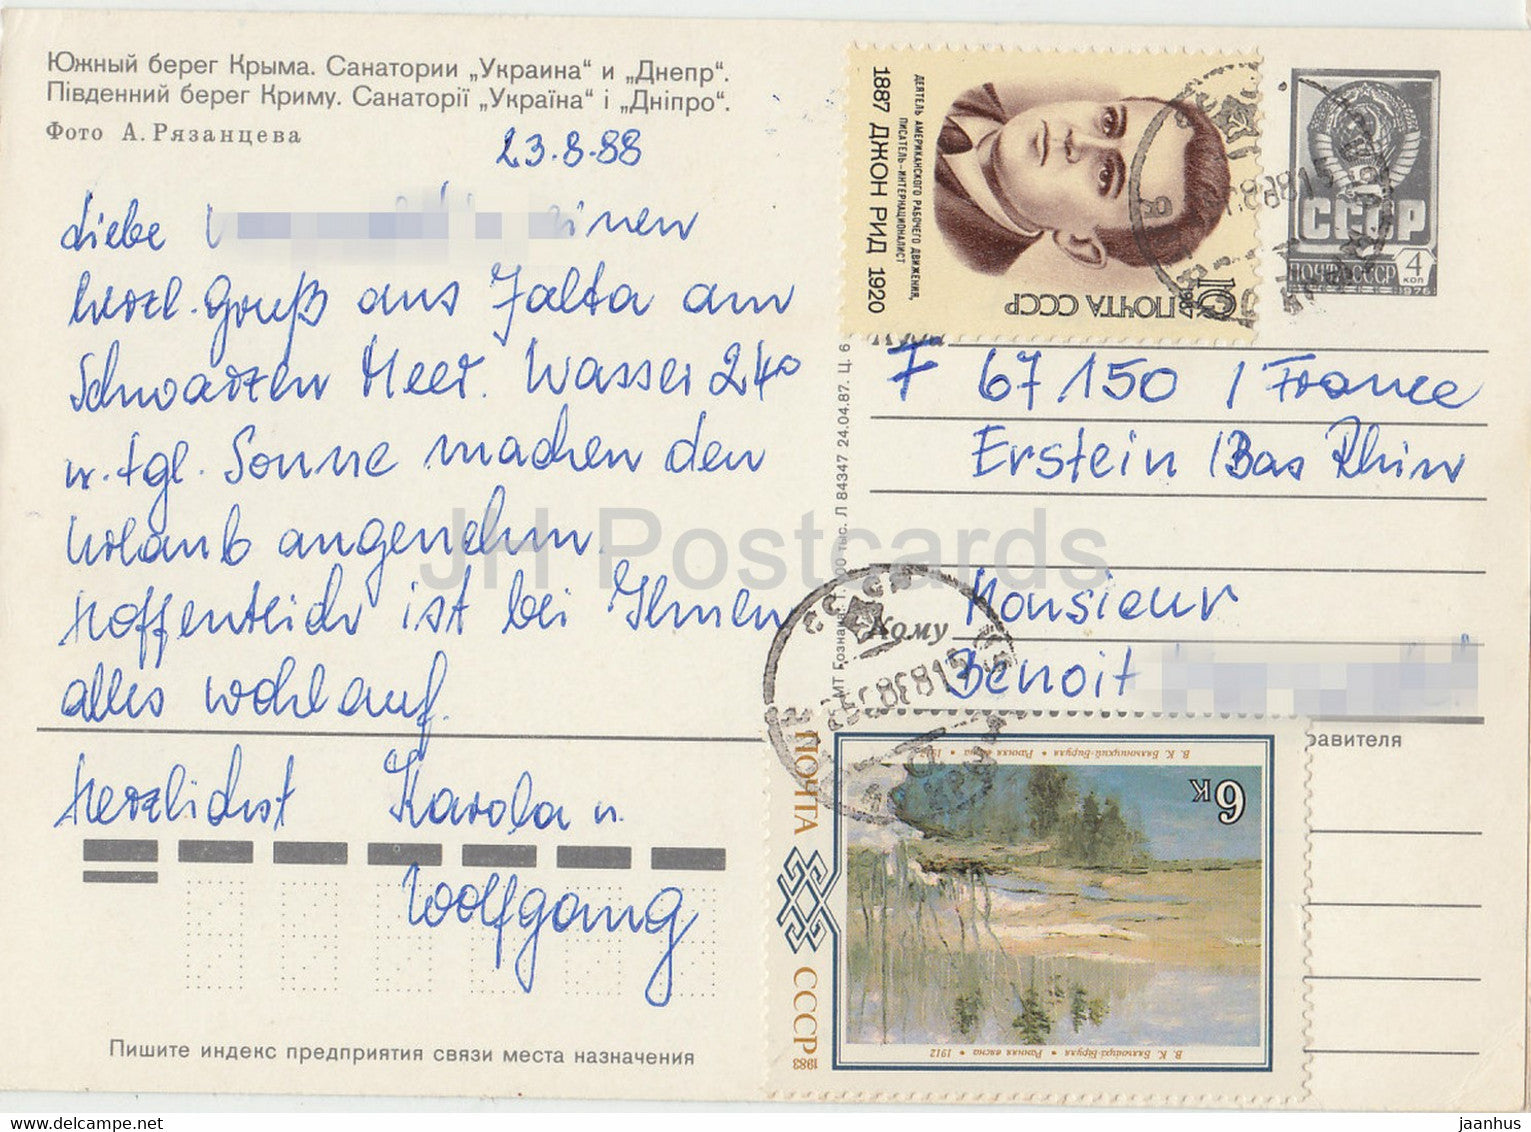 Южный берег Крыма. Санатории „Украина“ и „Днепр“.
Південний берег Криму. Санаторії „Україна“ і „Дніпро“.
Фото А. Рязанцева
23.8.88
Liebe einen
herzl. Gruß aus Jalta am
Schwarzen Meer. Wasser 24°
u. tgl. Sonne machen den
Urlaub angenehm.
Hoffentlich ist bei Ihnen
alles wohlauf.
Herzlichst Karola u.
Wolfgang
Пишите индекс предприятия связи места назначения
ДЕЯТЕЛЬ АМЕРИКАНСКОГО РАБОЧЕГО ДВИЖЕНИЯ,
ПИСАТЕЛЬ-ИНТЕРНАЦИОНАЛИСТ
1887 ДЖОН РИД 1920
ПОЧТА СССР 1987
10
СССР
ПОЧТА СССР 4
КОП
1976
F 67150 / France
Erstein / Bas Rhin
Кому
Monsieur
Benoit
авителя
Л 84347 24.04.87. Ц. 6
МТ Гознака
00 тыс.
ПОЧТА СССР 1983
6к
В. К. Бялыницкий-Бируля • Ранняя весна • 1912
В. К. Бялыніцкі-Біруля • Ранняя вясна • 1912
JH Postcards
HipPostcard.com
jaanhus